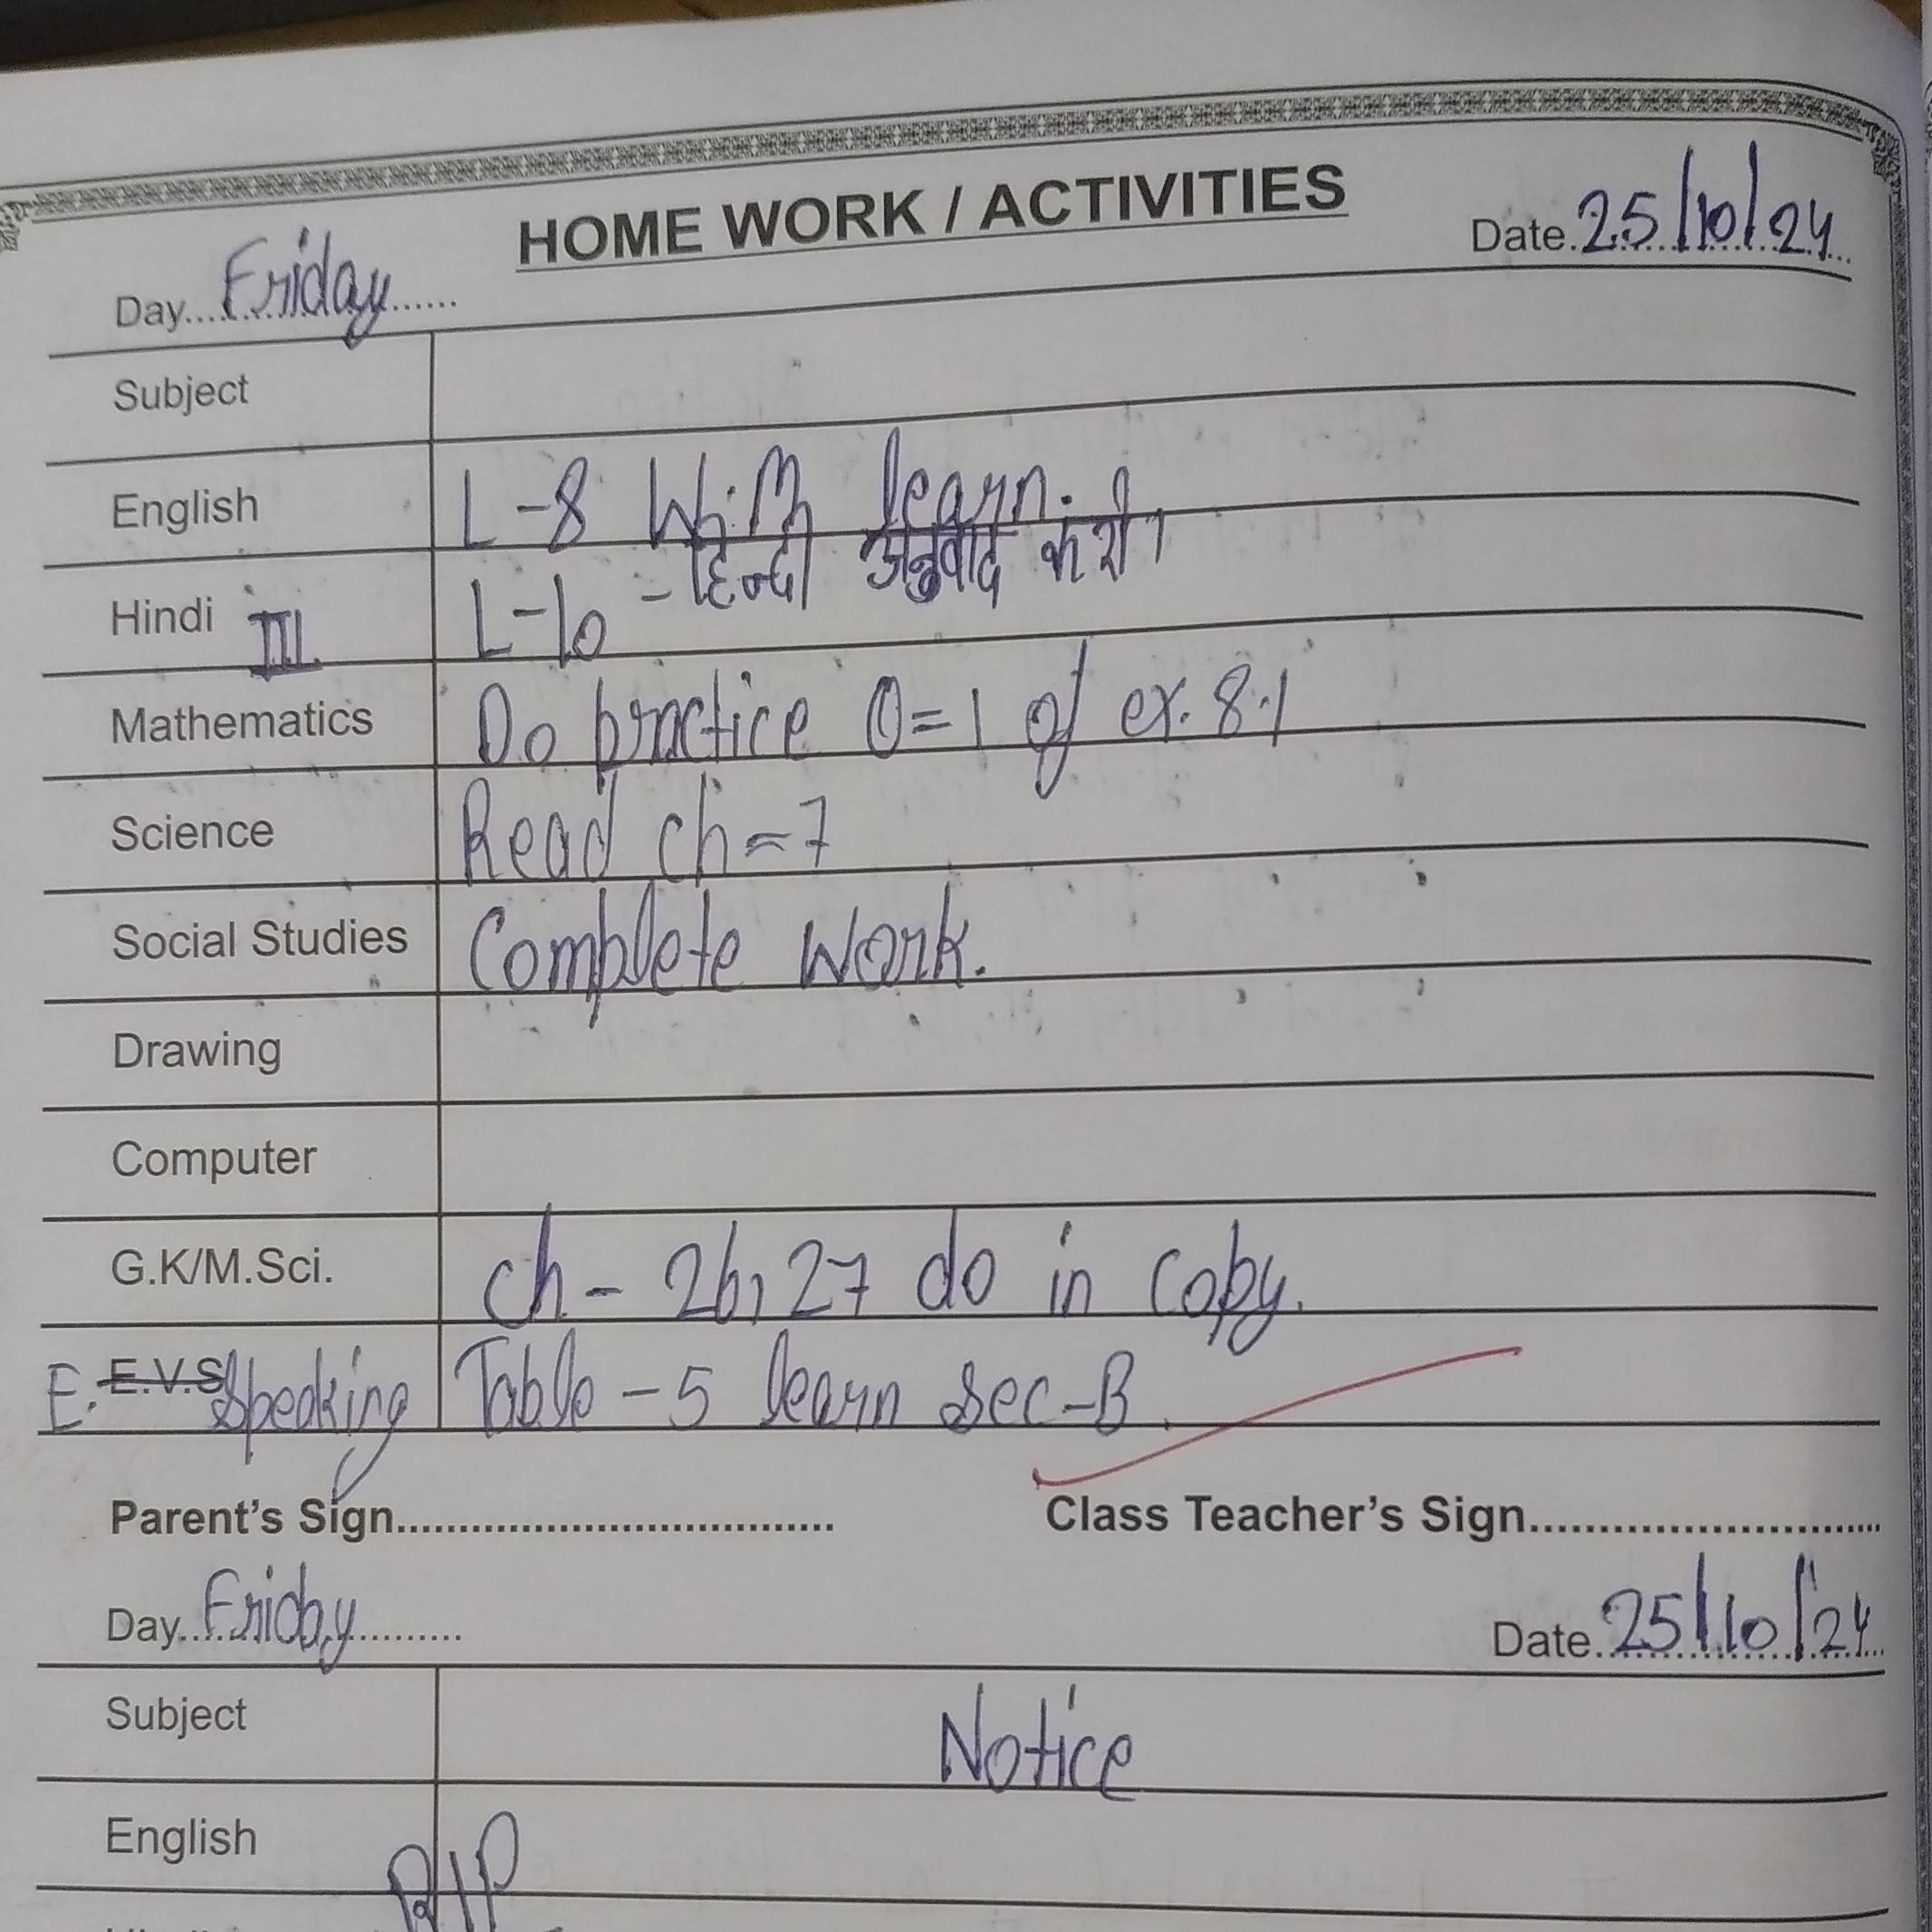 HOME WORK / ACTIVITIES
Day....Friday...... Date.25/10/24
Subject
English L-8 W.M learn.
Hindi III L-10 - हिन्दी अनुवाद करो।
Mathematics Do practice Q=1 of ex. 8.1
Science Read ch=7
Social Studies Complete work.
Drawing
Computer
G.K/M.Sci. ch- 26, 27 do in copy.
E. E.V.S Speaking Table - 5 learn sec-B.
Parent's Sign................................. Class Teacher's Sign...........................
Day..Friday.......... Date.25/10/24
Subject Notice
English
R/P